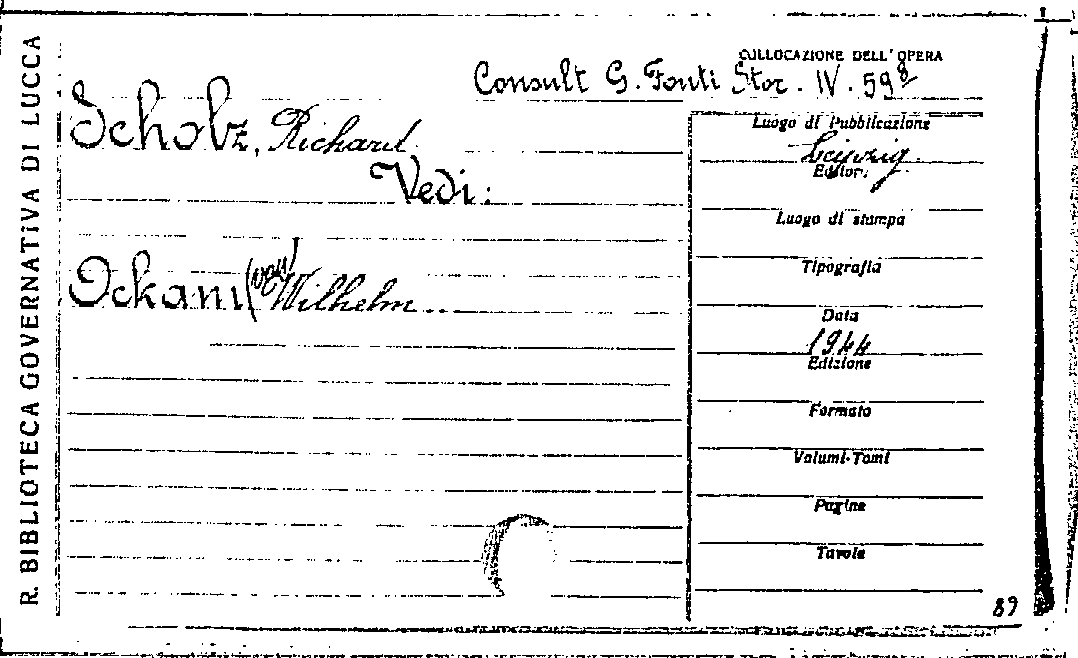 R. BIBLIOTECA GOVERNATIVA DI LUCCA
COLLOCAZIONE DELL'OPERA
Consult G. Fonti Stor. IV. 59 8
Scholz, Richard
Vedi:
Ockam (von) Wilhelm..
Luogo di Pubblicazione
Leipzig.
Editore
Luogo di stampa
Tipografia
Data
1944
Edizione
Formato
Volumi-Tomi
Pagine
Tavole
89